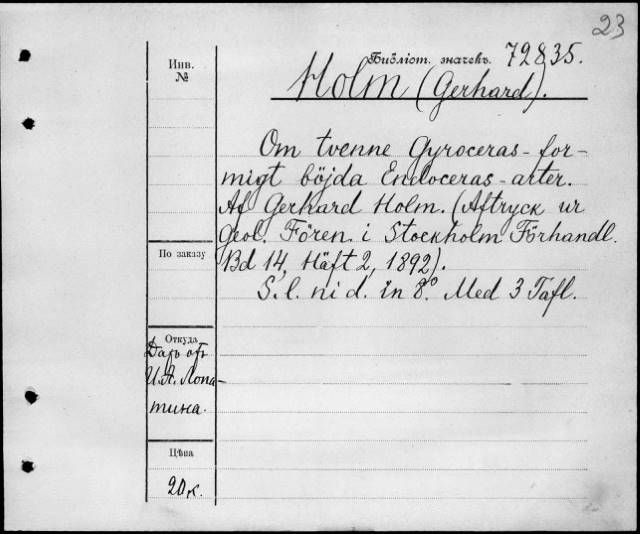 23
Инв.
№
Библіот. значекъ. 72835.
Holm (Gerhard).
Om tvenne Gyroceras-for-
migt böjda Endoceras-arter.
Af Gerhard Holm. (Aftryck ur
Geol. Fören. i Stockholm Förhandl.
Bd 14, Häft 2, 1892).
S. l. ni d. in 8º. Med 3 Tafl.
По заказу
Откуда
Даръ отъ
И.А. Лопа-
тина.
Цѣна
20 к.